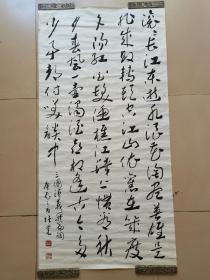 滚滚长江东逝水浪花淘尽英雄是
非成败转头空江山依舊在几度
夕阳红白髮渔樵江渚上惯看秋
月春风一壶浊酒喜相逢古今多
少事都付笑谈中
三国演義